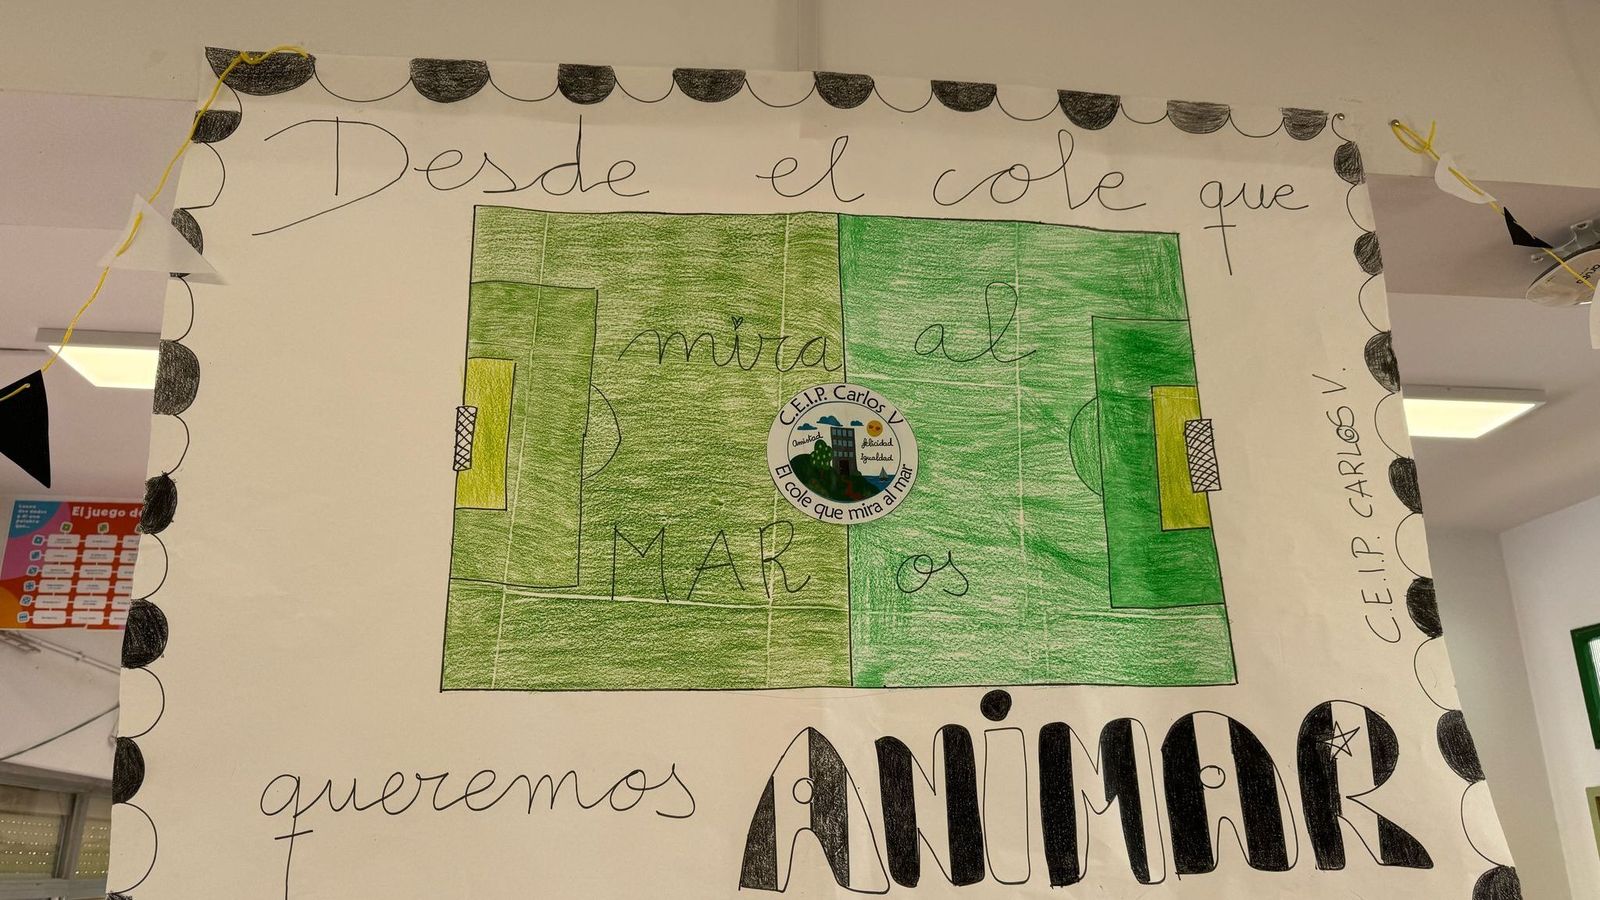 Desde el cole que
mira al
C.E.I.P. Carlos V
Amistad
felicidad
Igualdad
El cole que mira al mar
MAR os
queremos ANiMAR
C.E.I.P. CARLOS V.
El juego de